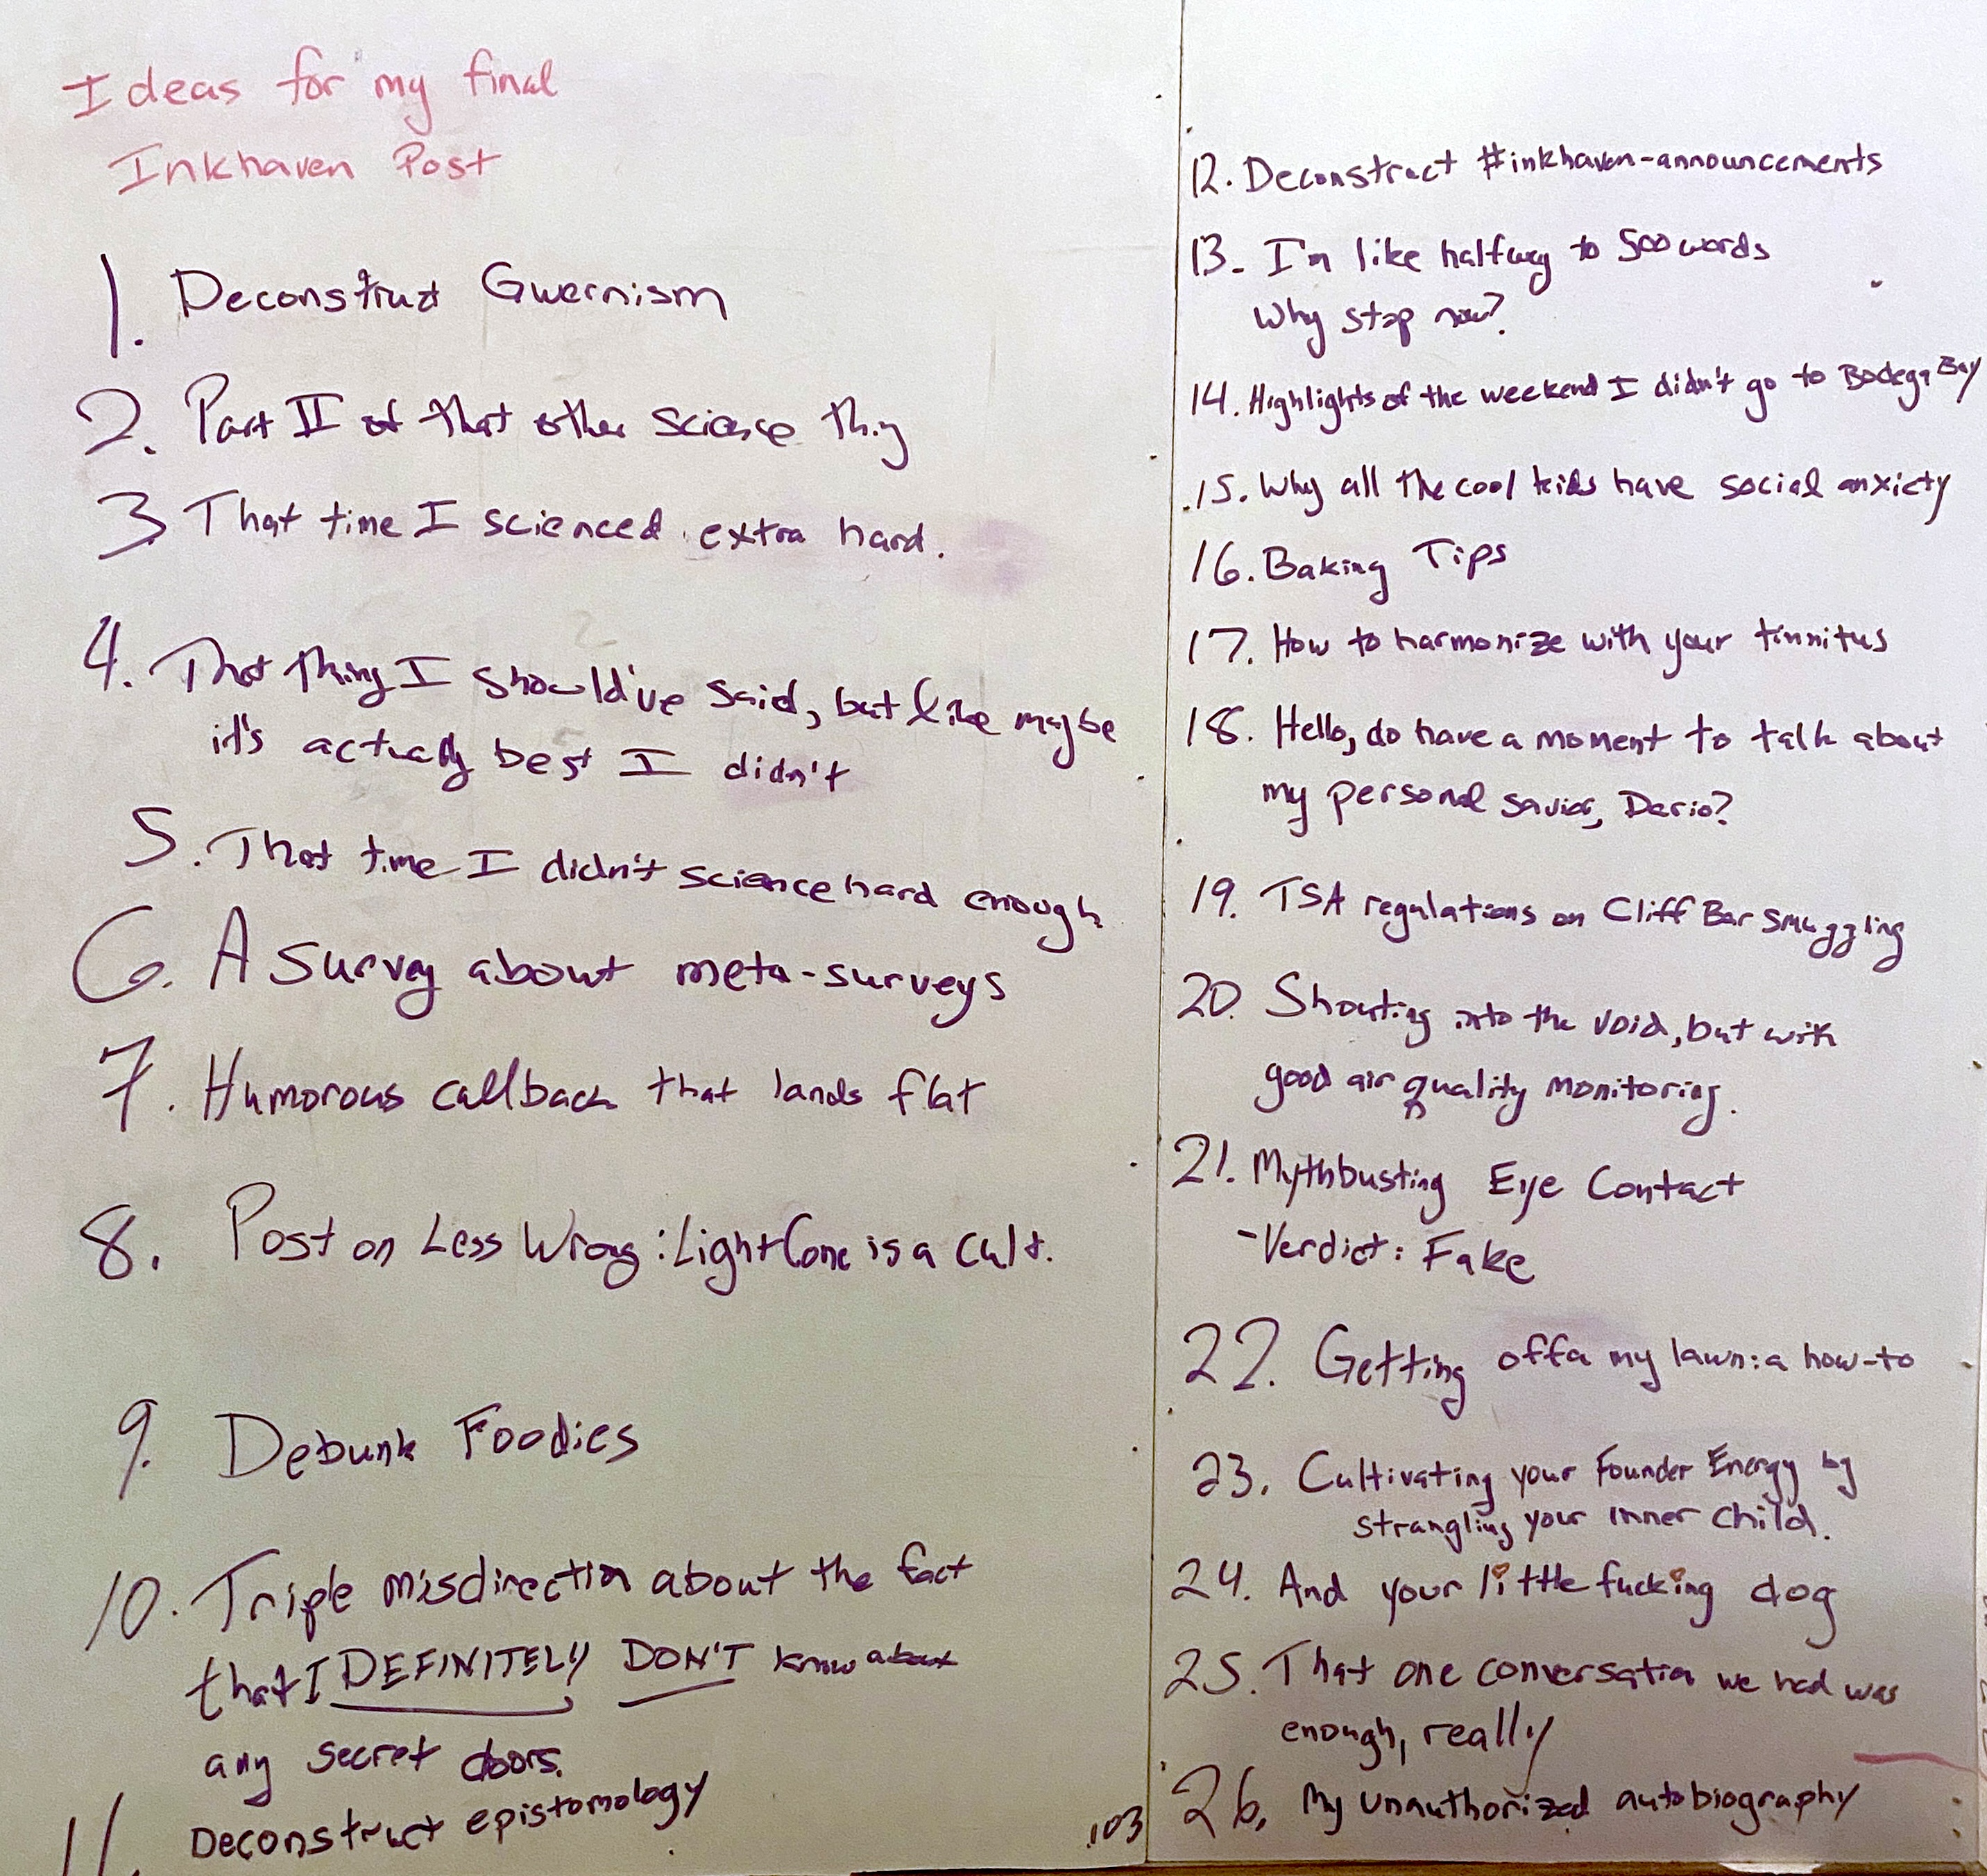 Ideas for my final
Inkhaven Post
1. Deconstruct Gwernism
2. Part II of that other science thing
3 That time I scienced extra hard.
4. That thing I should've said, but like maybe
it's actually best I didn't
5. That time I didn't science hard enough
6. A survey about meta-surveys
7. Humorous callback that lands flat
8. Post on Less Wrong: LightCone is a cult.
9. Debunk Foodies
10. Triple misdirection about the fact
that I DEFINITELY DON'T know about
any secret doors.
11. Deconstruct epistomology
.103
12. Deconstruct #inkhaven-announcements
13. I'm like halfway to 500 words
Why stop now?
14. Highlights of the weekend I didn't go to Bodega Bay
15. Why all the cool kids have social anxiety
16. Baking Tips
17. How to harmonize with your tinnitus
18. Hello, do have a moment to talk about
my personal savior, Dario?
19. TSA regulations on Cliff Bar smuggling
20. Shouting into the void, but with
good air quality monitoring.
21. Mythbusting Eye Contact
-Verdict: Fake
22. Getting offa my lawn: a how-to
23. Cultivating your Founder Energy by
strangling your inner child.
24. And your little fucking dog
25. That one conversation we had was
enough, really
26. My unauthorized autobiography